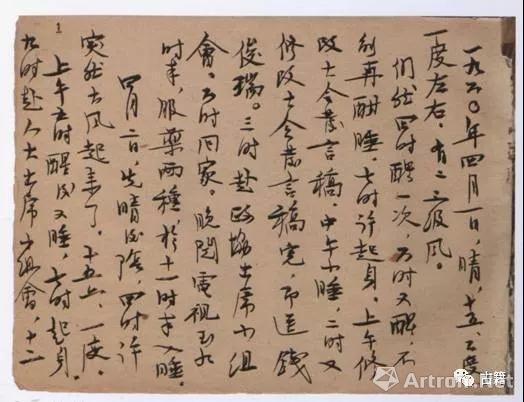 1
一九六〇年四月一日,晴,十五、六度
一度左右,有二三级风。
四时醒一次,六时又醒,不
刻再酣睡,七时许起身。上午修
改大会发言稿。中午小睡,二时又
修改大会发言稿完而送钱
俊瑞。三时赴政协出席小组
会,六时回家。晚阅电视至九
时半,服药两种於十一时半入睡。
四月二日,先晴后阴,四时许
突然大风起来了。十五上、一度。
上午五时醒后又睡,七时起身。
九时赴人大出席小组会,十二
古籍
Artron.Net